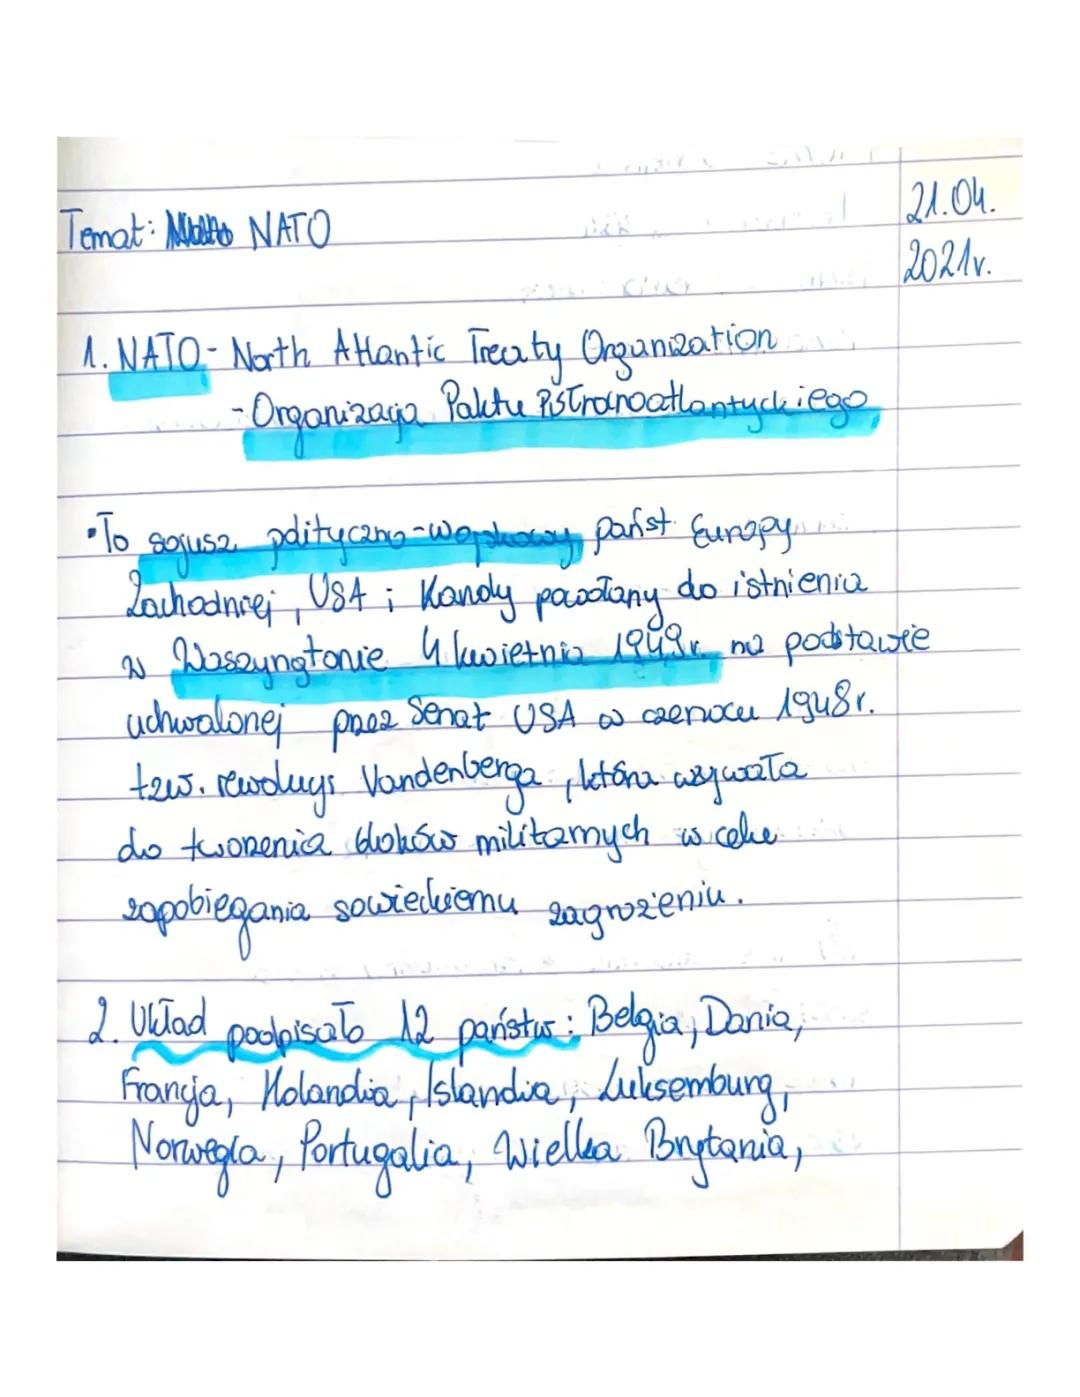 Temat: NATO
21.04.
2021r.
1. NATO - North Atlantic Treaty Organization
- Organizacja Paktu Północnoatlantyckiego
• To sojusz polityczno-wojskowy państ. Europy
Zachodniej, USA i Kandy powołany do istnienia
w Waszyngtonie 4 kwietnia 1949r. na podstawie
uchwalonej przez Senat USA w czerwcu 1948r.
tzw. rewolucji Vandenberga, która wzywała
do tworzenia bloków militarnych w celu
zapobiegania sowieckiemu zagrożeniu.
2. Układ podpisało 12 państw: Belgia, Dania,
Francja, Holandia, Islandia, Luksemburg,
Norwegia, Portugalia, Wielka Brytania,